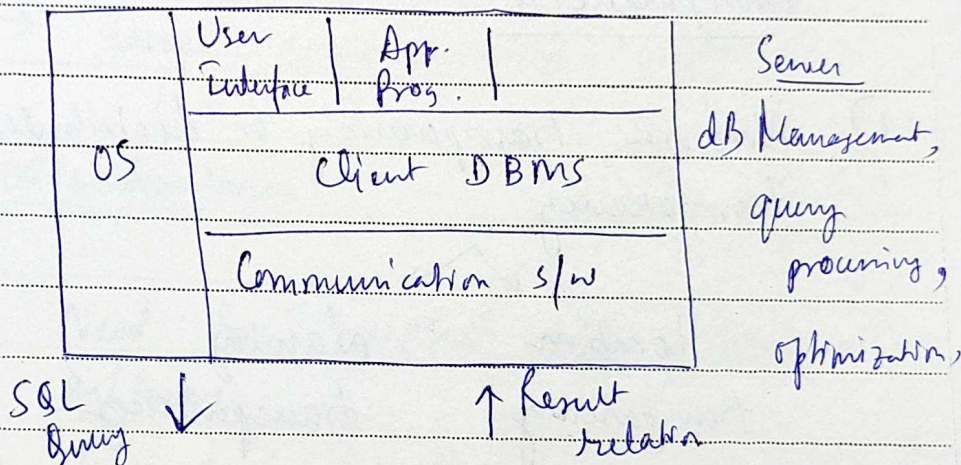 User
Interface
App.
Prog.
OS
Client DBMS
Communication s/w
Server
dB Management,
query
processing,
optimization,
SQL
Query
Result
relation